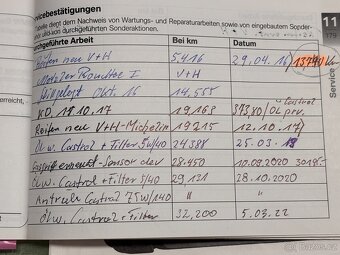 Servicebestätigungen
Tabelle dient dem Nachweis von Wartungs- und Reparaturarbeiten sowie von eingebautem Sonder-
und von durchgeführten Sonderaktionen.
11
179
durchgeführte Arbeit Bei km Datum
Reifen neu V+H 5.416 29.04.16 13740
Metzeler Roadtec I V+H
Okt. 16 14.555
KD 18.10.17 19.168 393,80/OL Castrol
Reifen neu V+H-Michelin 19215 12.10.17
Ölw. Castrol + Filter 5W40 24388 25.03.
Sensor 28.450 10.09.2020
Ölw. Castrol + Filter 5/40 29.131 28.10.2020
Antrieb Castrol 75W/140 " "
Ölw. Castrol + Filter 32,200 5.03.22
Service